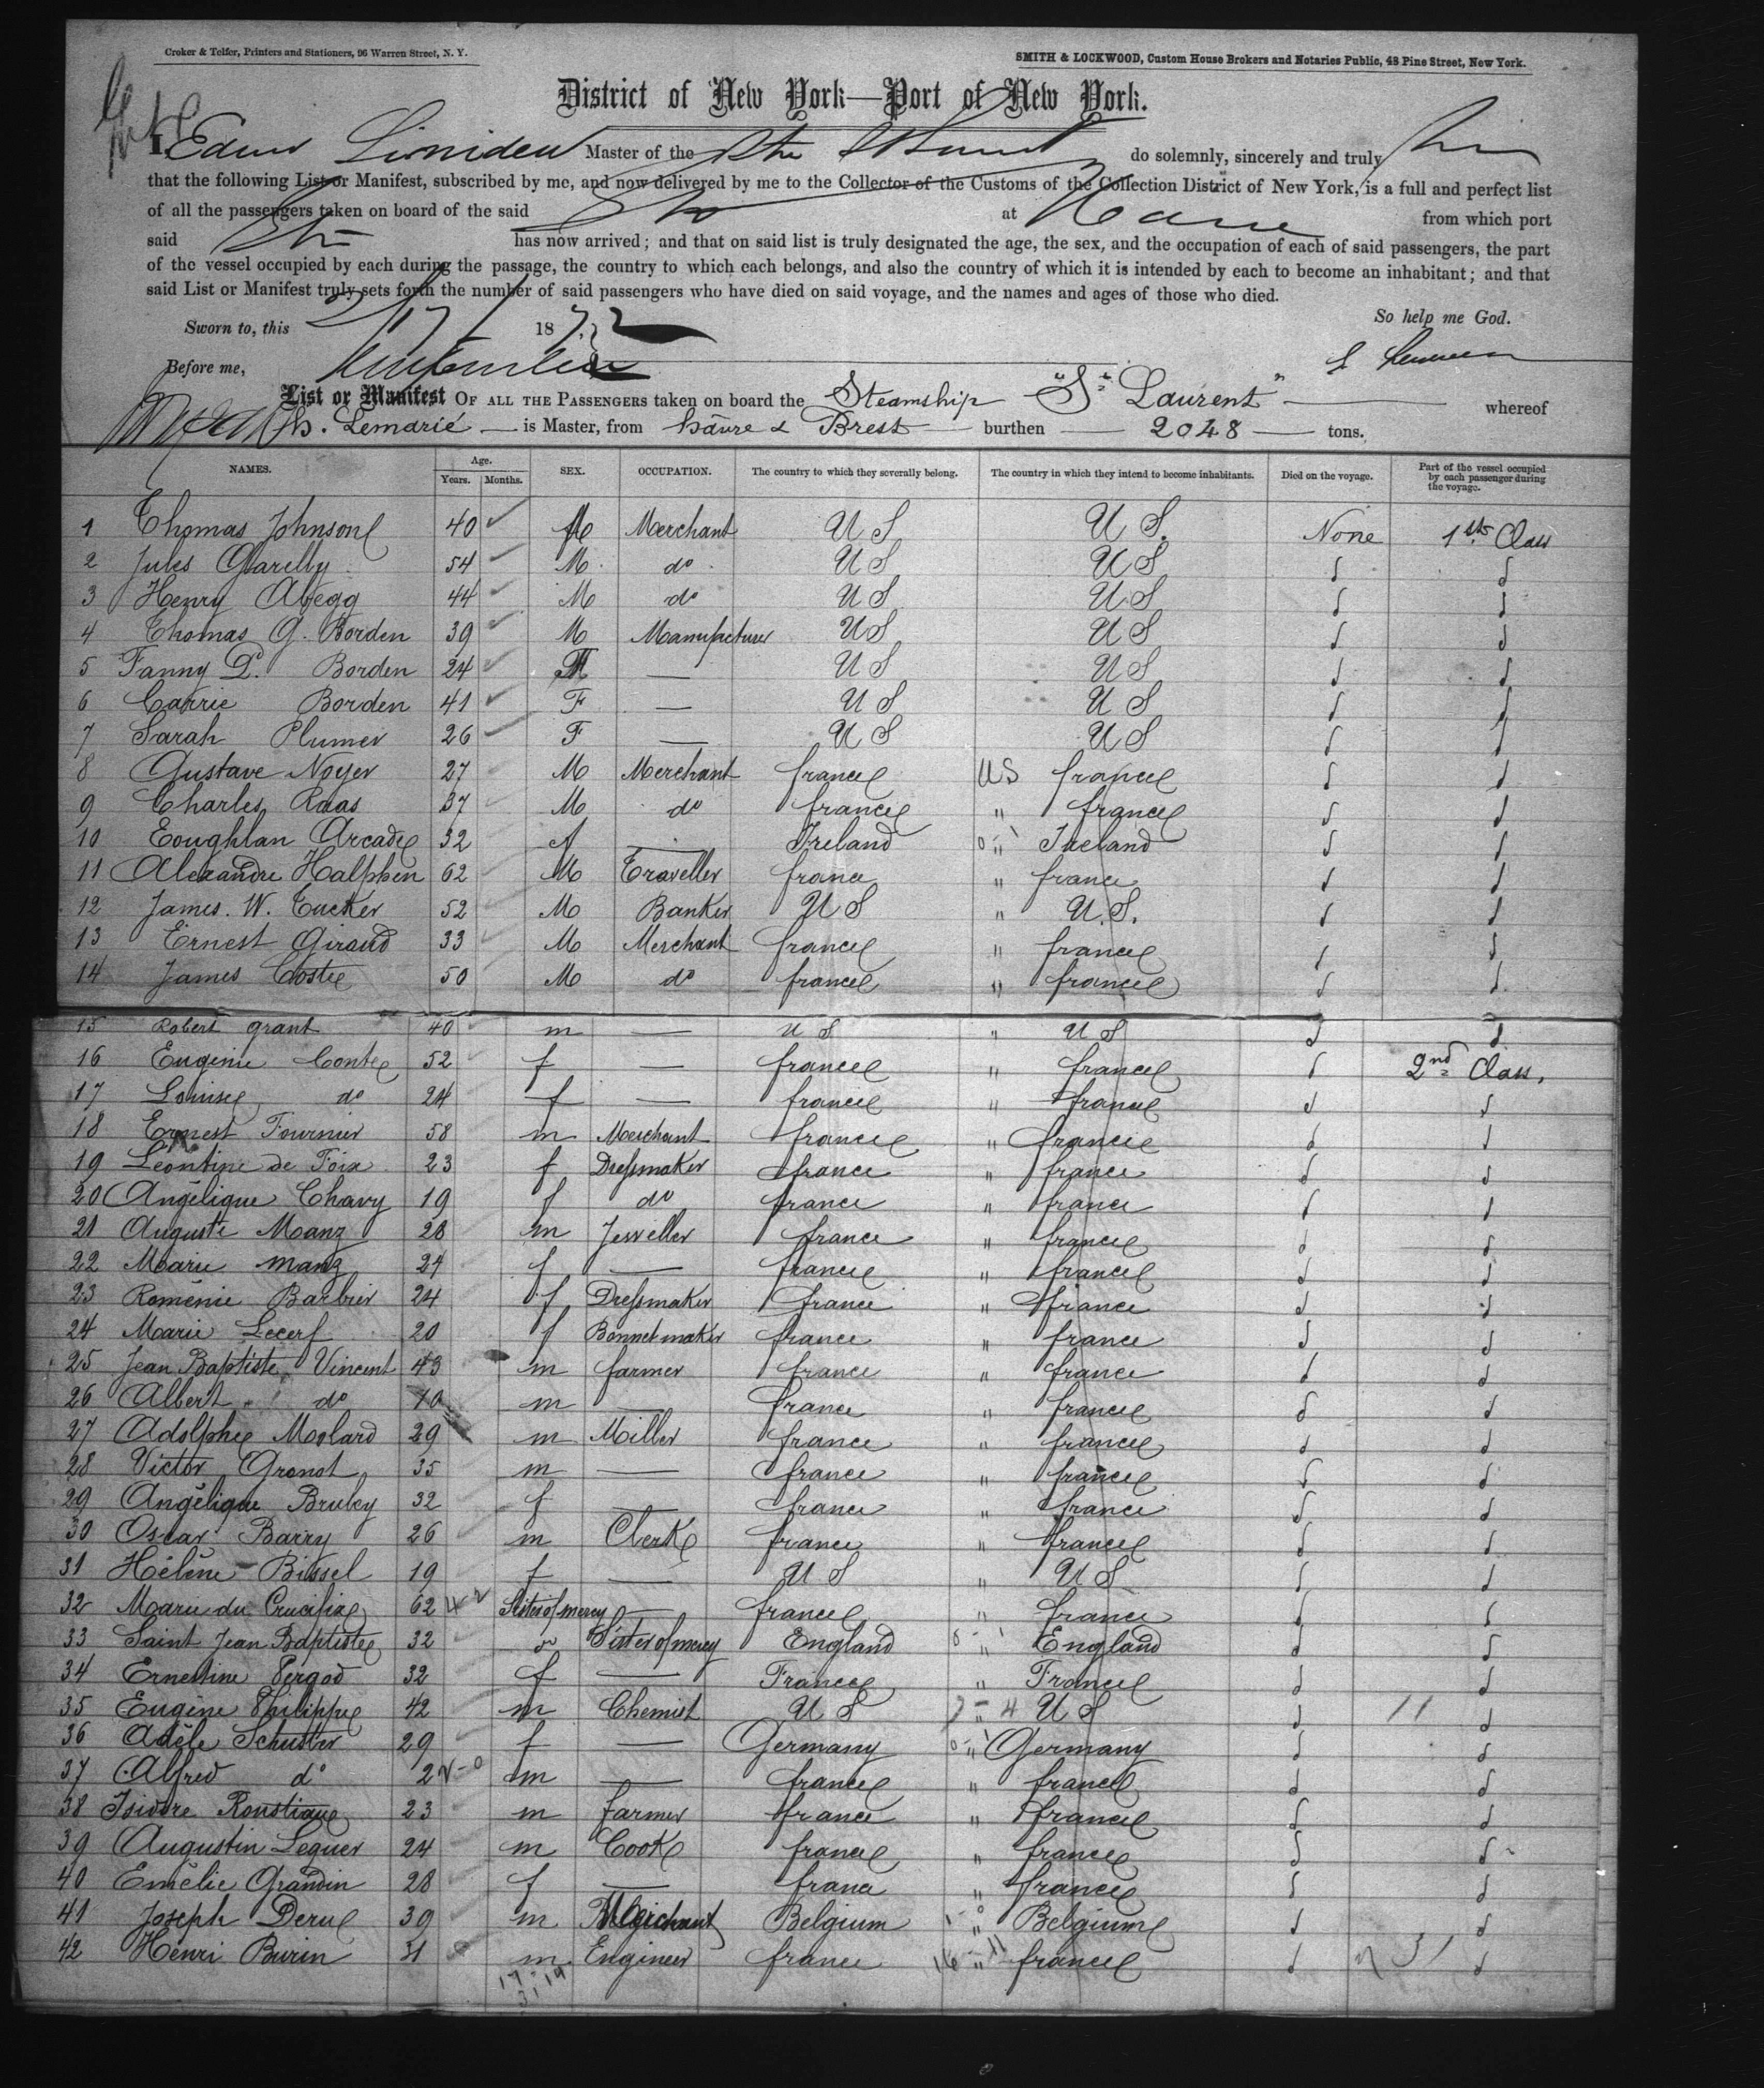 Croker & Telfer, Printers and Stationers, 96 Warren Street, N. Y.
SMITH & LOCKWOOD, Custom House Brokers and Notaries Public, 48 Pine Street, New York.
District of New York—Port of New York.
I, Master of the do solemnly, sincerely and truly
that the following List or Manifest, subscribed by me, and now delivered by me to the Collector of the Customs of the Collection District of New York, is a full and perfect list
of all the passengers taken on board of the said at Havre from which port
said has now arrived; and that on said list is truly designated the age, the sex, and the occupation of each of said passengers, the part
of the vessel occupied by each during the passage, the country to which each belongs, and also the country of which it is intended by each to become an inhabitant; and that
said List or Manifest truly sets forth the number of said passengers who have died on said voyage, and the names and ages of those who died.
Sworn to, this 1872 So help me God.
Before me,
List or Manifest OF ALL THE PASSENGERS taken on board the Steamship "St Laurent" whereof
Lemarié is Master, from hâvre & Brest burthen 2048 tons.
NAMES. Age. Years. Months. SEX. OCCUPATION. The country to which they severally belong. The country in which they intend to become inhabitants. Died on the voyage. Part of the vessel occupied by each passenger during the voyage.
1 Thomas Johnson 40 M Merchant U S U S. None 1st Class
2 Jules 54 M do U S U S d d
3 Henry Abegg 44 M do U S U S d d
4 Thomas J. Borden 39 M Manufacturer U S U S d d
5 Fanny D. Borden 24 F — U S U S d d
6 Carrie Borden 41 F — U S U S d d
7 Sarah Plumer 26 F — U S U S d d
8 Gustave Noyer 27 M Merchant france US france d d
9 Charles Raas 37 M do france " france d d
10 Coughlan Arcade 32 f — Ireland " Ireland d d
11 Alexandre Halphen 62 M Traveller france " france d d
12 James. W. Tucker 52 M Banker U S " U.S. d d
13 Ernest Giraud 33 M Merchant france " france d d
14 James Coste 50 M do france " france d d
15 Robert grant 40 m — U S " U S d d
16 Eugénie Conte 52 f — france " france d 2nd Class.
17 Louise do 24 f — france " france d d
18 Ernest Fournier 58 m Merchant france " france d d
19 Léontine de Foix 23 f Dressmaker france " france d d
20 Angélique Chavy 19 f do france " france d d
21 Auguste Manz 28 m Jeweller france " france d d
22 Marie Manz 24 f — france " france d d
23 Roménie Barbier 24 f Dressmaker france " france d d
24 Marie Lecerf 20 f Bonnetmaker france " france d d
25 Jean Baptiste Vincent 43 m farmer france " france d d
26 Albert do 10 m — france " france d d
27 Adolphe Molard 29 m Miller france " france d d
28 Victor Gronot 35 m — france " france d d
29 Angélique Bruley 32 f — france " france d d
30 Oscar Barry 26 m Clerk france " france d d
31 Hélène Bissel 19 f — U S " U S d d
32 Marie du Crucifix 62 Sister of mercy — france " france d d
33 Saint Jean Baptiste 32 do Sister of mercy England " England d d
34 Ernestine Pergod 32 f — France " France d d
35 Eugène Philippe 42 m Chemist U S " U S d 11 d
36 Adèle Schuster 29 f — Germany " Germany d d
37 Alfred do 2 m — france " france d d
38 Isidore 23 m farmer france " france d d
39 Augustin Lequer 24 m Cook france " france d d
40 Emélie Grandin 28 f — france " france d d
41 Joseph Derue 39 m Merchant Belgium " Belgium d d
42 Henri Burin 31 m Engineer france " france d 31 d